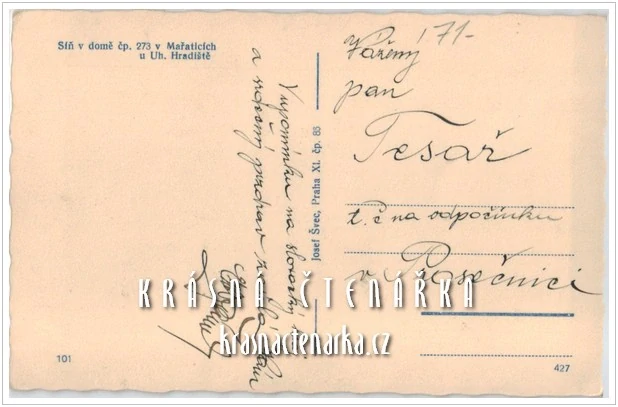 Síň v domě čp. 273 v Mařaticích
u Uh. Hradiště
171-
Vážený
pan
Tesař
t. č na odpočinku
v Prosečnici
Vzpomínku na slovácký
a srdečný pozdrav
Josef Švec, Praha XI. čp. 83
KRÁSNÁ ČTENÁŘKA
krasnactenarka.cz
101
427